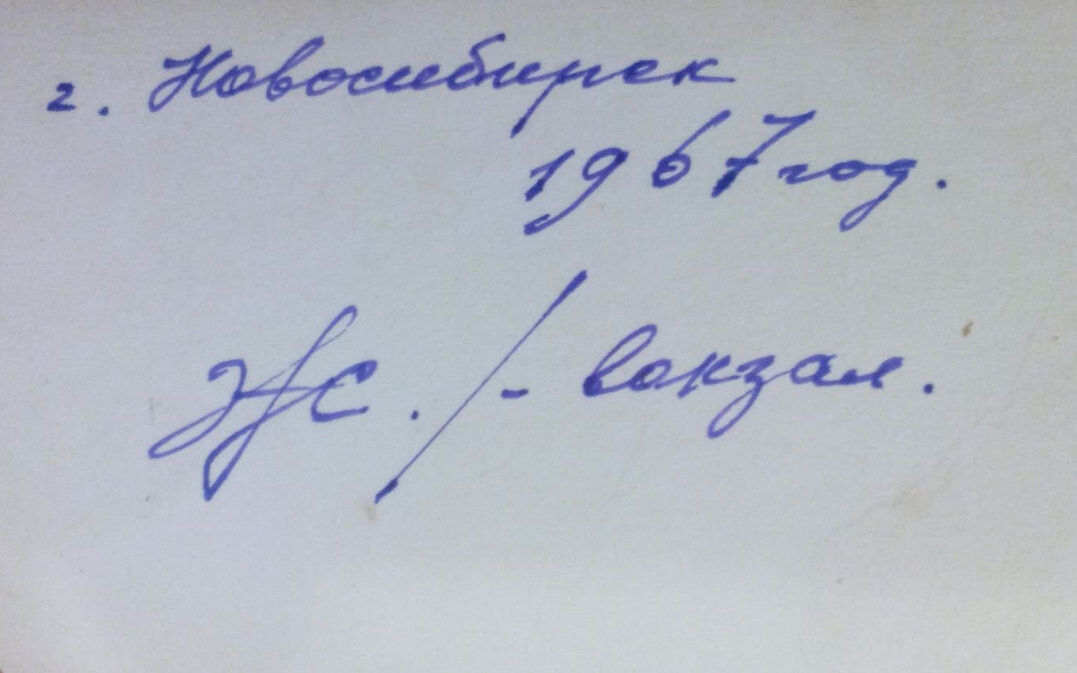 г. Новосибирск
1967 год.
Ж. / - вокзал.